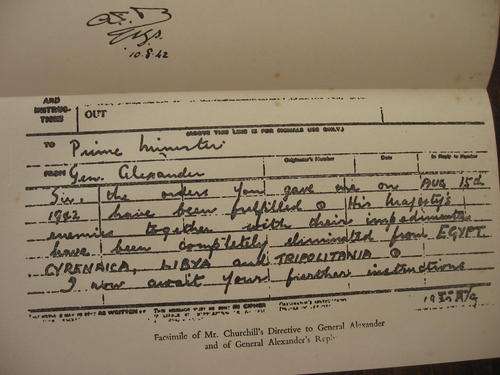 10.8.42
AND
INSTRUC-
TIONS
OUT
(ABOVE THIS LINE IS FOR SIGNALS USE ONLY.)
TO Prime Minister
FROM Gen. Alexander Originator's Number Date In Reply to Number
Sir, the orders you gave me on Aug 15th
1942 have been fulfilled. His Majesty's
enemies together with their impedimenta
have been completely eliminated from EGYPT
CYRENAICA, LIBYA and TRIPOLITANIA.
I now await your further instructions
Facsimile of Mr. Churchill's Directive to General Alexander
and of General Alexander's Reply